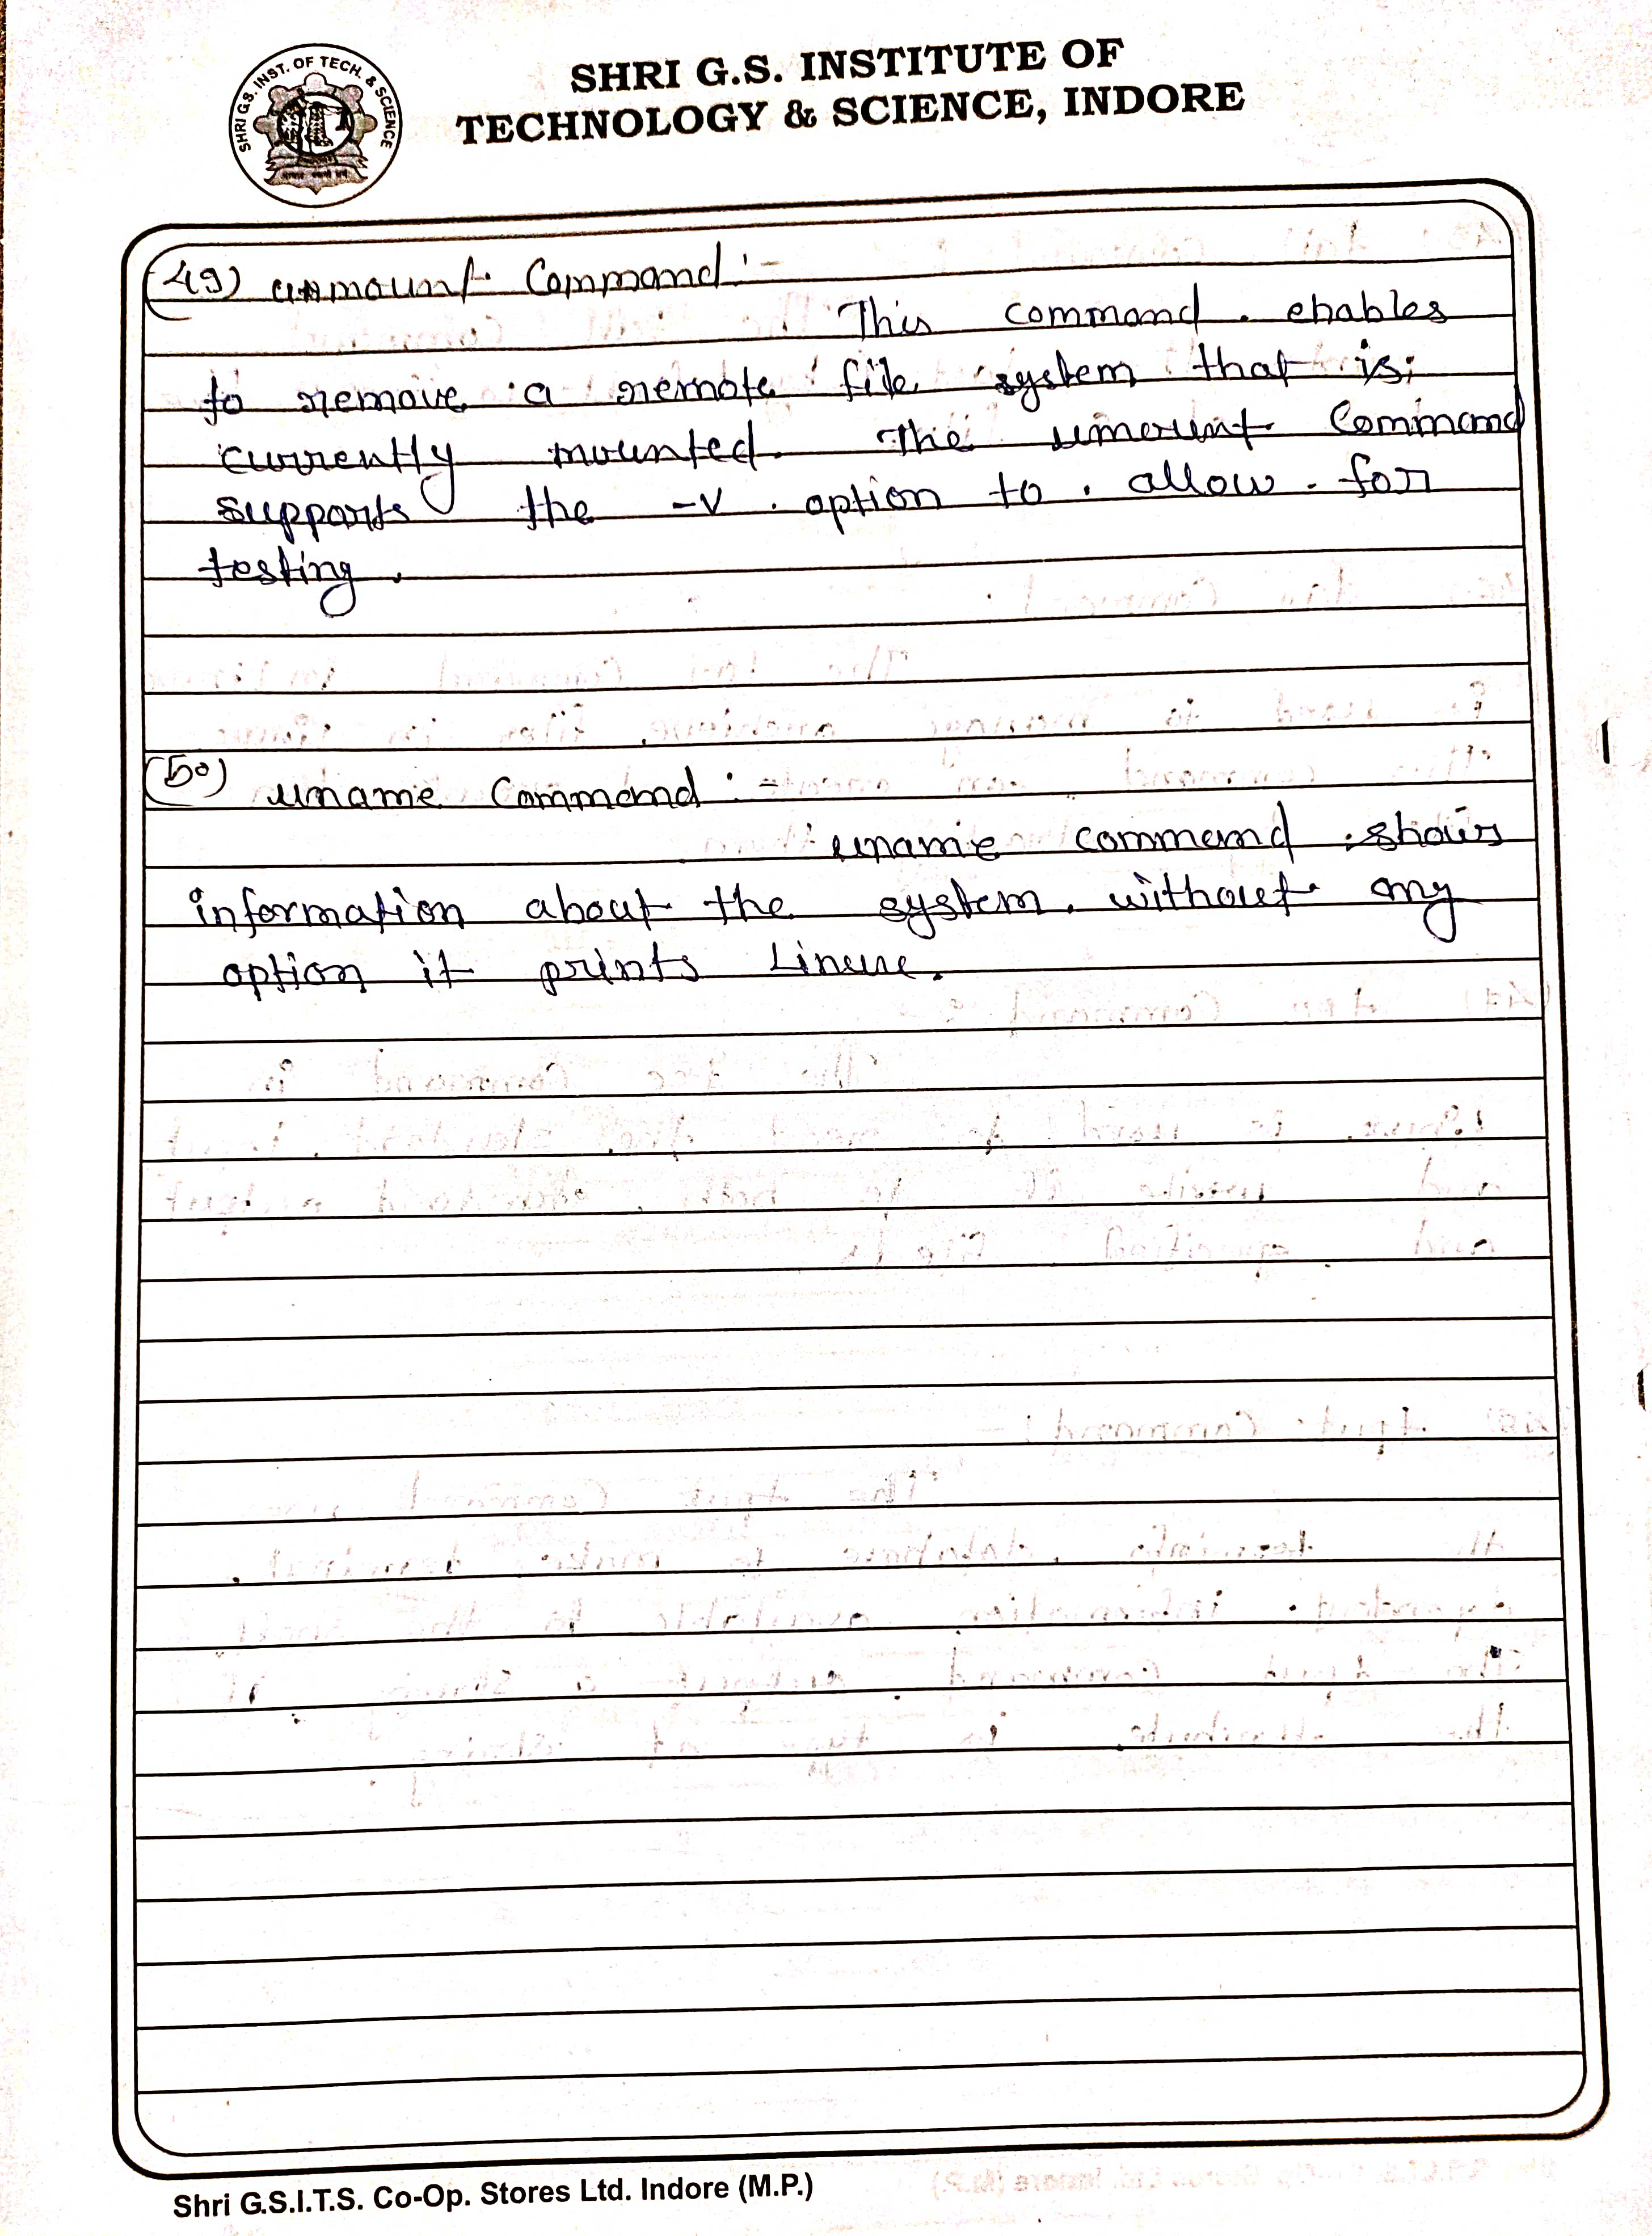 SHRI G.S. INST. OF TECH. & SCIENCE
SHRI G.S. INSTITUTE OF
TECHNOLOGY & SCIENCE, INDORE
(49) unmount Command :-
This command enables
to remove a remote file system that is
currently mounted. The umount Command
supports the -v option to allow for
testing.
(50) uname Command :-
uname command shows
information about the system. without any
option it prints Linux.
Shri G.S.I.T.S. Co-Op. Stores Ltd. Indore (M.P.)